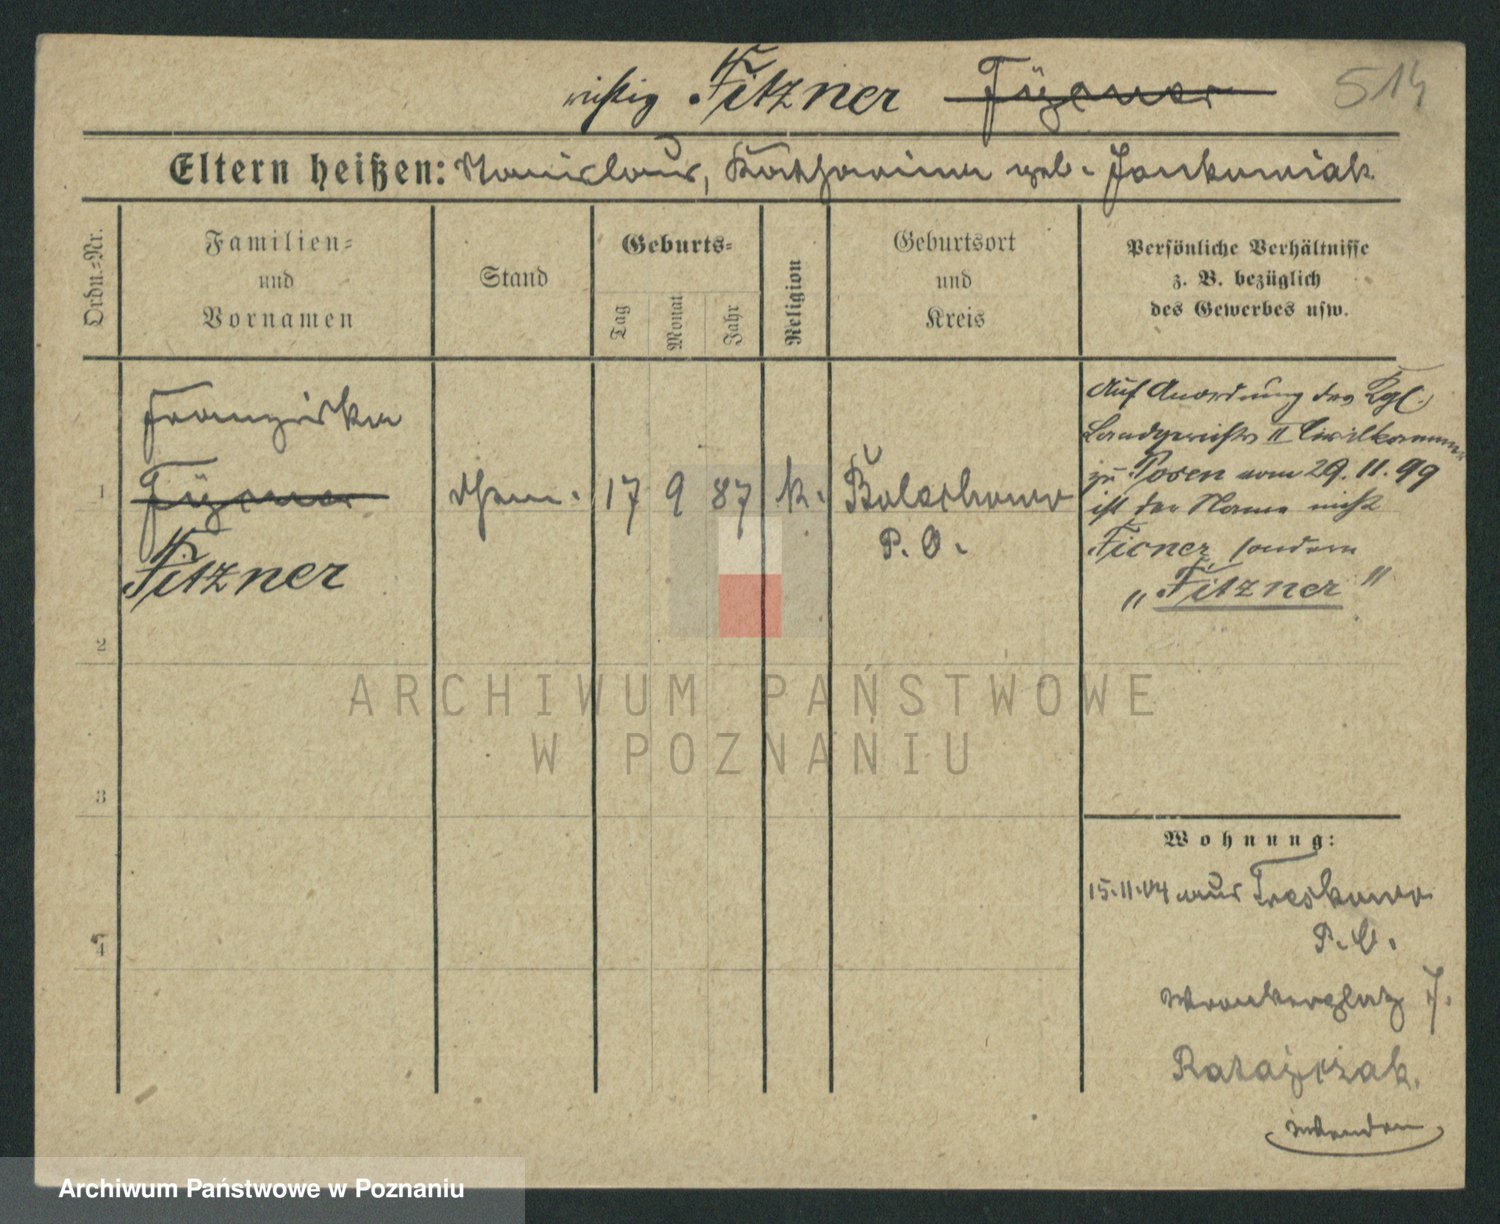 richtig Fitzner 514
Eltern heißen: Stanislaus, Katharina geb. Jankowiak
Ordn.-Nr.
Familien-
und
Vornamen
Stand
Geburts-
Tag
Monat
Jahr
Religion
Geburtsort
und
Kreis
Persönliche Verhältnisse
z. B. bezüglich
des Gewerbes usw.
1
Franziska
Fitzner
17 9 87 k.
P. O.
Auf Anordnung des Kgl.
Landgerichts II Civilkammer
zu Posen vom 29.11.99
ist der Name nicht
Ficner sondern
„Fitzner"
2
3
4
Wohnung:
15.11.04 aus Treskowo
P. O.
Wronkerplatz 7.
Ratajczak.
wenden
ARCHIWUM PAŃSTWOWE
W POZNANIU
Archiwum Państwowe w Poznaniu